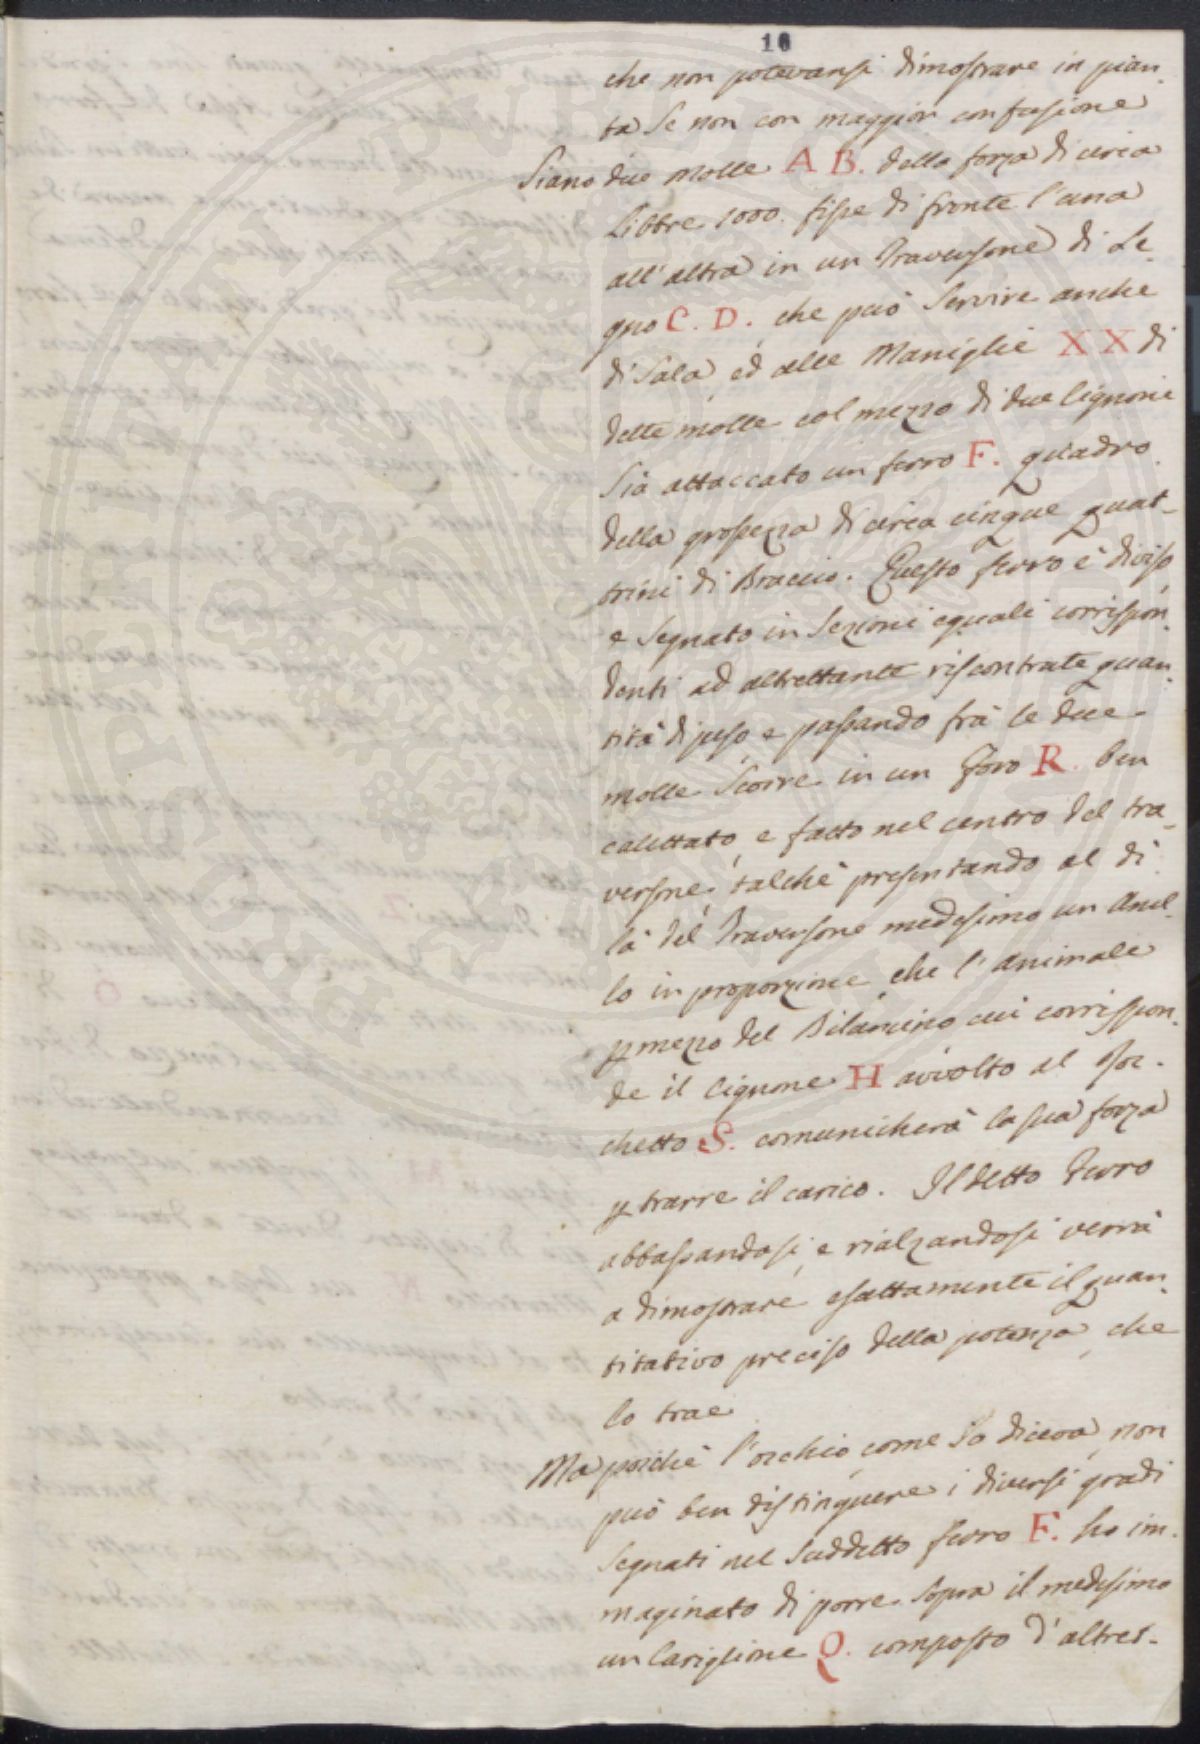 16
che non potevansi dimostrare in pian-
ta se non con maggior confusione
Siano due molle A B. della forza di circa
Libbre 1000. fisse di fronte l'una
all'altra in un Traversone di Le-
gno C. D. che può servire anche
di Sala, ed alle Maniglie X X di
dette molle col mezzo di due Cignoni
sia attaccato un ferro F. quadro
della grossezza di circa cinque quat-
trini di Braccio. Questo ferro è diviso
e segnato in Sezioni eguali corrispon-
denti ad altrettante riscontrate quan-
tità di peso, e passando frà le due
molle scorre in un Foro R. ben
calettato, e fatto nel centro del tra-
versone, talchè presentando al di
là del Traversone medesimo un Anel-
lo in proporzione che l'animale
p mezzo del Bilancino cui corrispon-
de il Cignone H avvolto al Roc-
chetto S. comunicherà la sua forza
p trarre il carico. Il detto Ferro
abbassandosi, e rialzandosi verrà
a dimostrare esattamente il quan-
titativo preciso della potenza, che
lo trae
Ma poichè l'occhio, come Io diceva, non
può ben distinguere i diversi gradi
segnati nel suddetto ferro F. ho im-
maginato di porre sopra il medesimo
un Cariglione Q. composto d'altret-
PROSPERITATI PVBLICAE